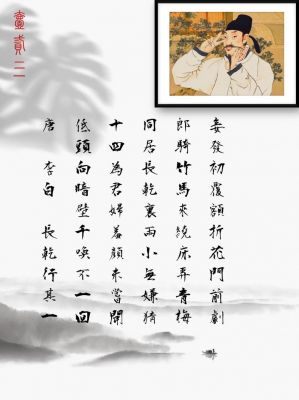 妾發初覆額折花門前劇
郎騎竹馬來繞床弄青梅
同居長乾裏兩小無嫌猜
十四為君婦羞顏未嘗開
低頭向暗壁千喚不一回
唐 李白 長乾行其一
壹貳